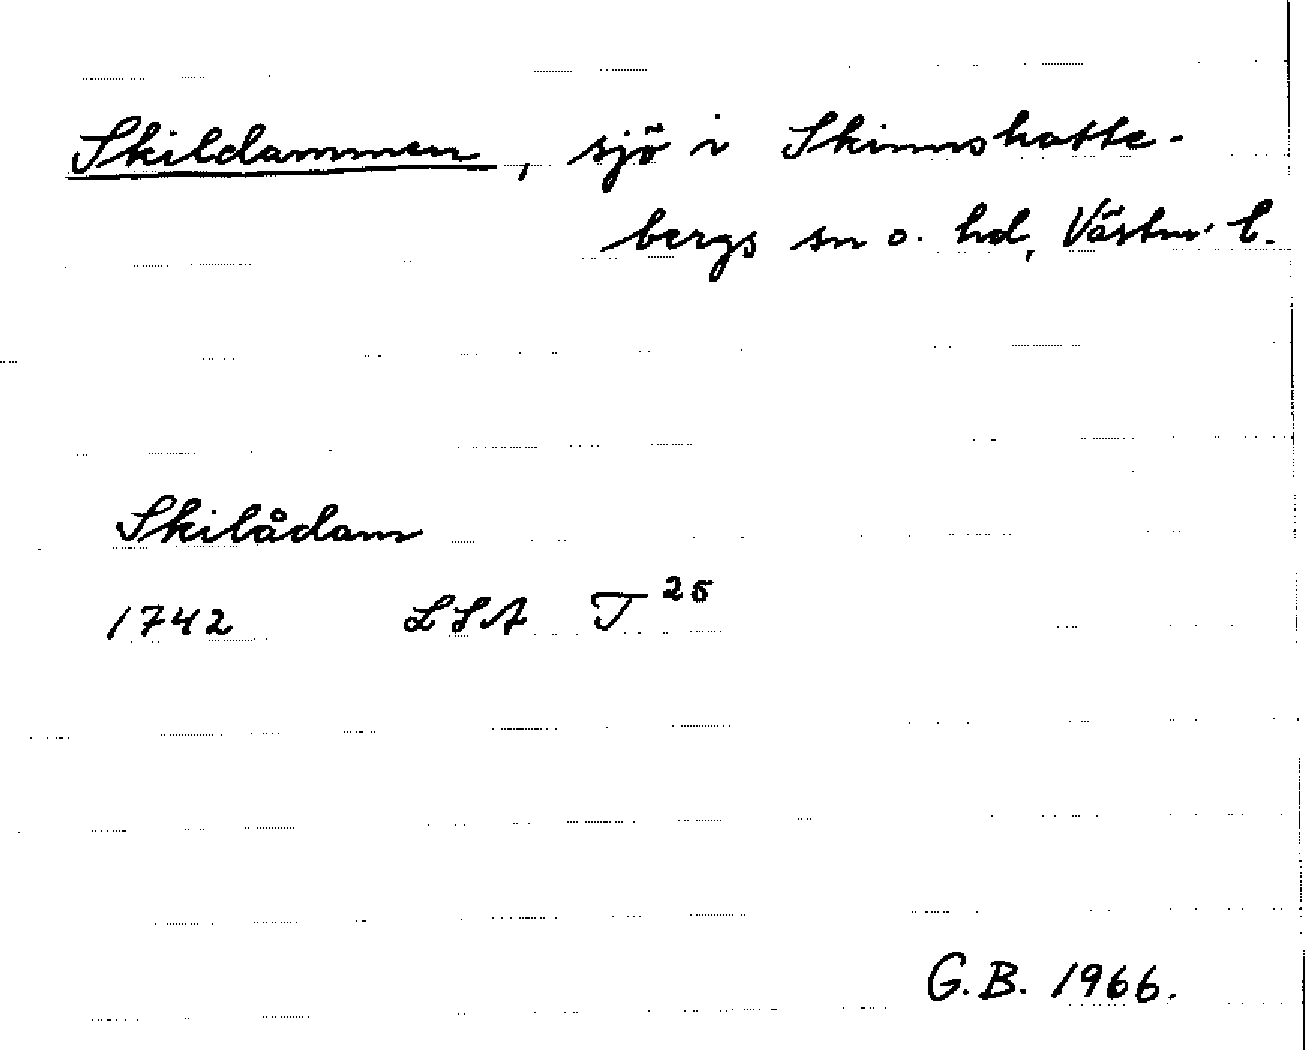 Skildammen, sjö i Skinnskatte-
bergs sn o. hd, Västm. l.
Skilådam
1742 LSA T 25
G.B. 1966.